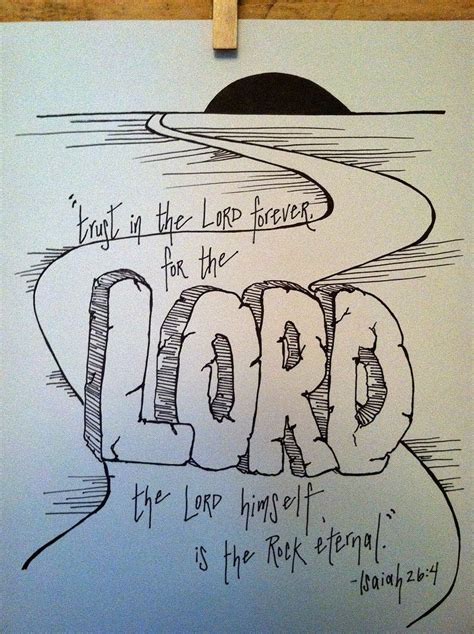 "trust in the LORD forever,
for the
LORD
the LORD himself
is the Rock eternal."
-Isaiah 26:4